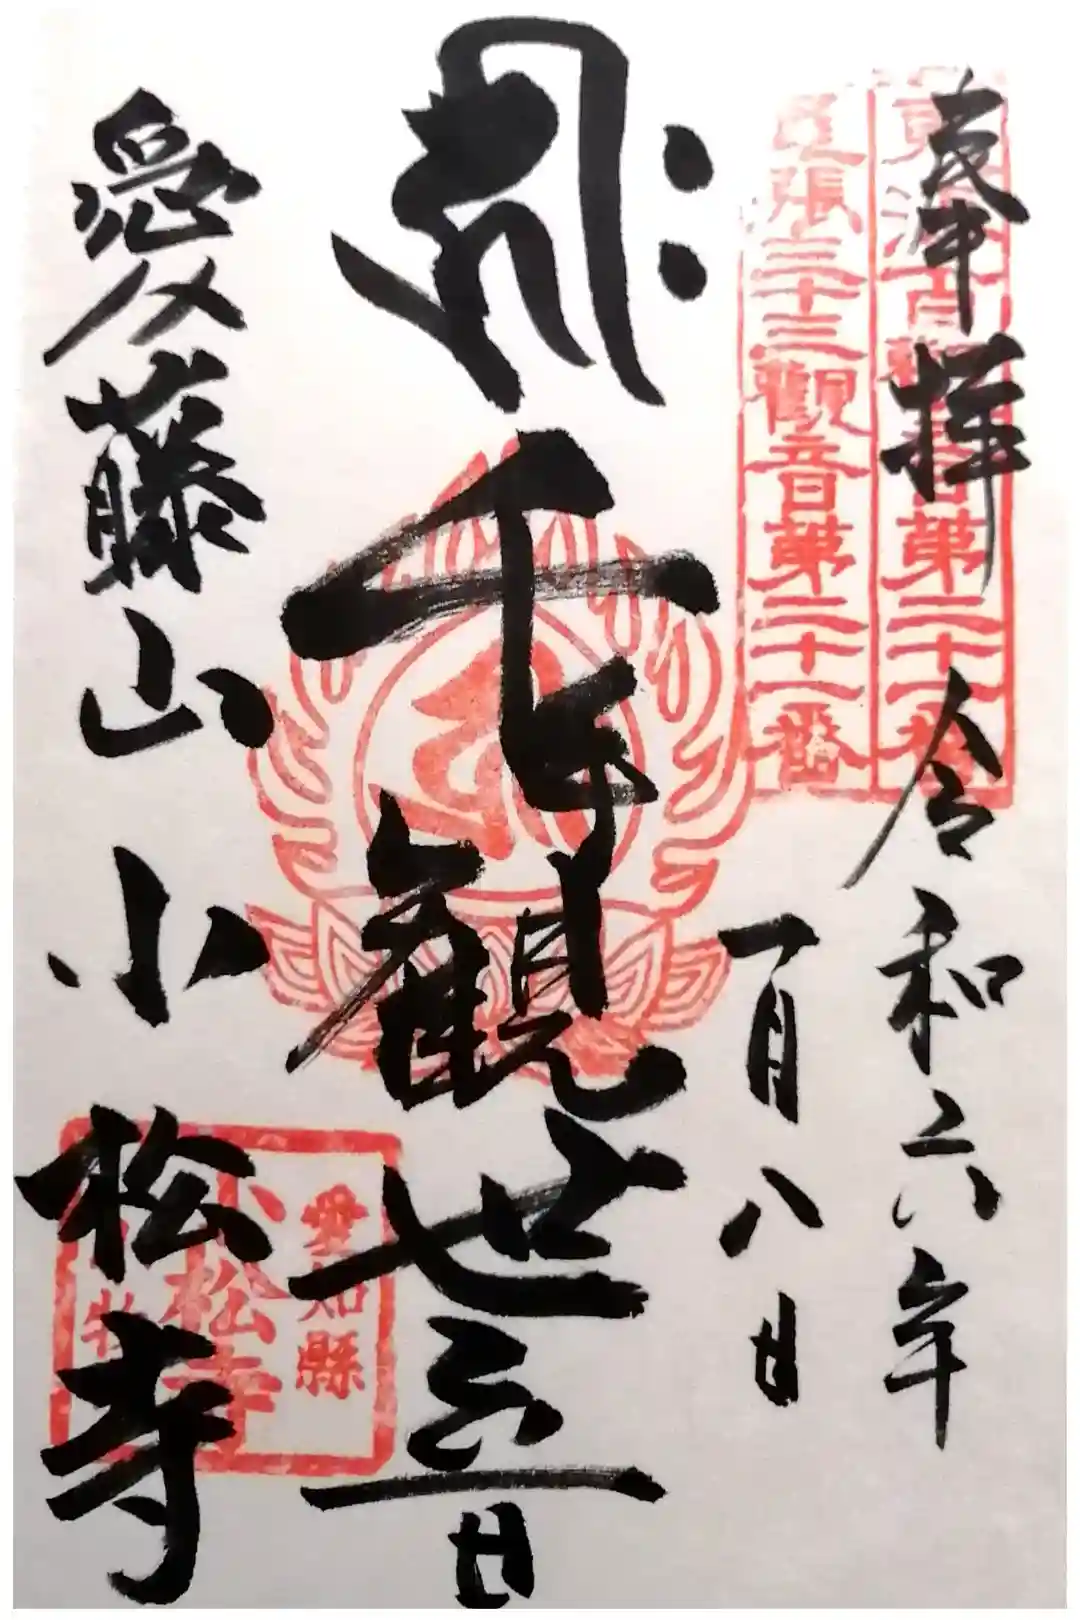 奉拝
令和六年
一月八日
東海百観音第二十一番
尾張三十三観音第二十一番
千手観世音
愛藤山
小松寺
愛知縣
小松寺